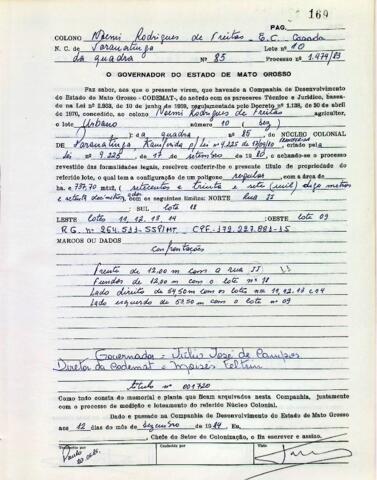 PÁG. 169
COLONO Noemi Rodrigues de Freitas - E.C. Casada
N. C. de Paranatinga Lote nº 10
da quadra Nº 85 Processo nº 1.979/83
O GOVERNADOR DO ESTADO DE MATO GROSSO
Faz saber, aos que o presente virem, que havendo a Companhia de Desenvolvimento
do Estado de Mato Grosso - CODEMAT-, de acôrdo com os pareceres Técnico e Jurídico, basea-
do na Lei nº 2.953, de 10 de junho de 1959, regulamentada pelo Decreto nº 1.138, de 30 de abril
de 1970, concedido, ao Colono Noemi Rodrigues de Freitas agricultor,
o lote Urbano número 10 ( dez )
da quadra nº 85, do NÚCLEO COLONIAL
DE Paranatinga, p/ Lei nº 9.225 de 17/09/80 criado pela
Lei nº 9.225 de 17 de setembro 19 80, e achando-se o processo
revestido das formalidades legais, resolveu conferir-lhe o presente título de propriedade do
referido lote, o qual tem a configuração de um polígono regular com a área de
ha. e 737,70 mts2, ( setecentos e trinta e sete (mil) digo metros
e setenta decímetros com os seguintes limites: NORTE Rua II
SUL lote 18
LESTE lotes 11, 12, 13, 14 OESTE lote 09
MARCOS OU DADOS
Confrontações
Frente de 12,00 m com a rua II
Fundos de 12,00 m com o lote nº 18
Lado direito de 59,50 m com os lotes nºs 11, 12, 13 e 14
Lado esquerdo de 59,50 m com o lote nº 09
Governador = Júlio José de Campos
Diretor da Codemat = Moisés Feltrin
título nº 001720
Como tudo consta do memorial e planta que ficam arquivados nesta Companhia, juntamente
com o processo de medição e loteamento do referido Núcleo Colonial.
Dado e passado na Companhia de Desenvolvimento do Estado de Mato Grosso
aos 12 dias do mês de dezembro de 1984 Eu,
Chefe do Setor de Colonização, o fiz escrever e assino.
Visto